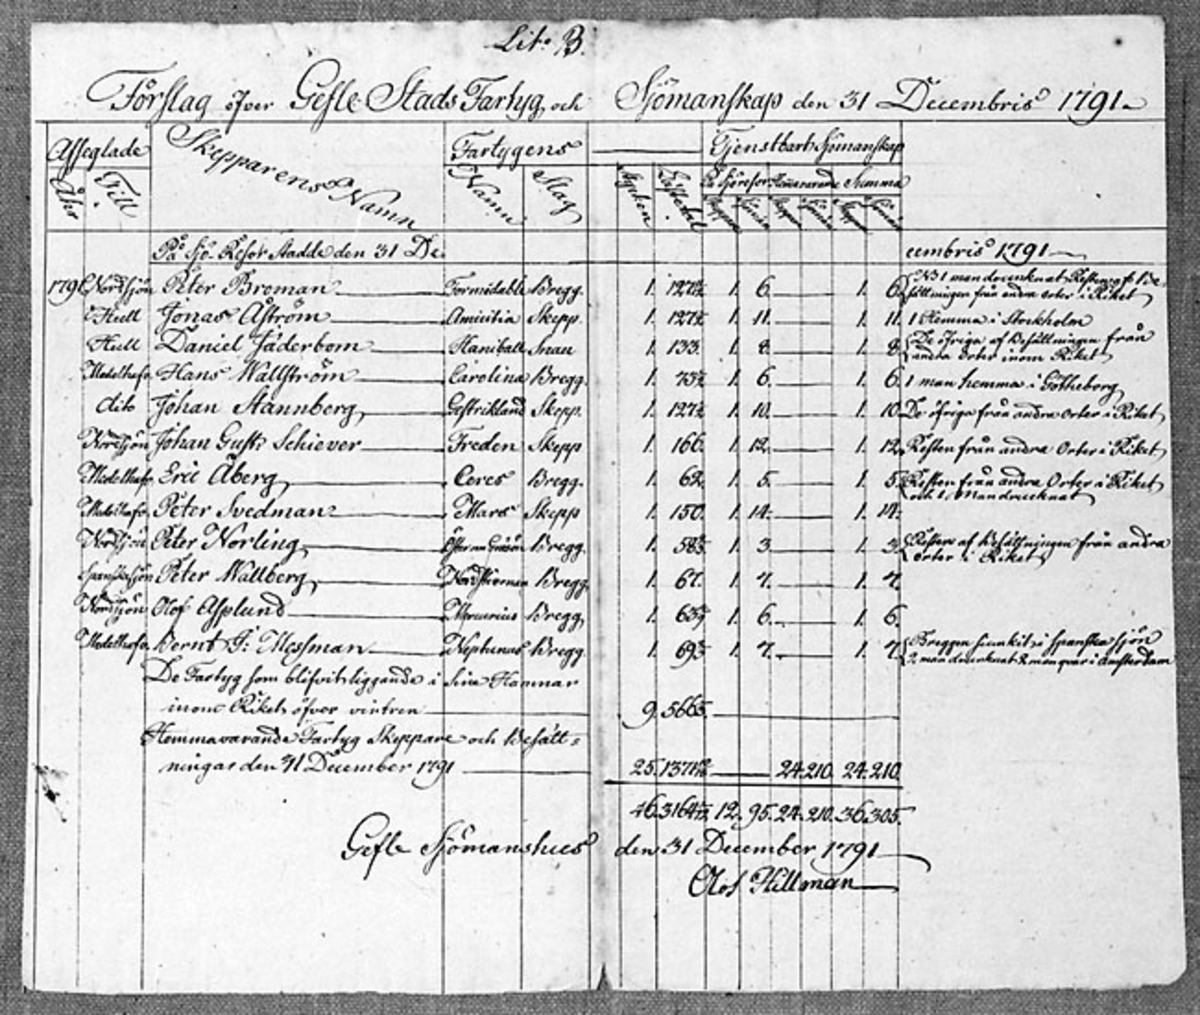 Lit. B.
Förslag öfver Gefle Stads Fartyg och Sjömanskap den 31 Decembris 1791
Afseglade Skepparens Namn Fartygens Tjenstbart Sjömanskap
Åhr Till Namn Slag Stycken Lästetal På Sjöresor Hemmavarande Summa
På Sjö-Resor Stadde den 31 Decembris 1791
1791 Nordsjön Peter Broman Formidable Bregg. 1. 1. 6. 1. 6. 1 man drunknat Resten af Besättningen från andra orter i Riket
Hull Jonas Åström Amicitia Skepp. 1. 1. 11. 1. 11. 1 Hemma i Stockholm
Hull Daniel Jäderbom Haniball Snau 1. 133. 1. 8. 1. 8. De öfriga af Besättningen från andra orter inom Riket
Medelhafv. Hans Wallström Carolina Bregg. 1. 1. 6. 1. 6. 1 man hemma i Götheborg
dito Johan Stannberg Gestrikland Skepp. 1. 1. 10. 1. 10. De öfriga från andra Orter i Riket
Nordsjön Johan Gust. Schiever Freden Skepp 1. 166. 1. 12. 1. 12. Resten från andra Orter i Riket
Medelhafv. Eric Åberg Ceres Bregg. 1. 62. 1. 5. 1. 5. Resten från andra Orter i Riket och 1 Man drucknat
Medelhafv. Peter Svedman Mars Skepp 1. 150. 1. 14. 1. 14.
Nordsjön Peter Norling Bregg. 1. 1. 3. 1. 3. Resten af Besättningen från andra orter i Riket
Spanskasjön Peter Wallberg Nordstiernan Bregg. 1. 67. 1. 7. 1. 7.
Nordsjön Olof Asplund Mercurius Bregg. 1. 1. 6. 1. 6.
Medelhafv. Bernt J: Messman Neptunus Bregg. 1. 1. 7. 1. 7. Breggen siunkit i Spanska sjön 2 man drunknat 2 man qvar i Amsterdam
De Fartyg som blifvit liggande i sina Hamnar
inom Riket öfver vintren 9.
Hemmavarande Fartyg Skeppare och Besätt-
ningar den 31 December 1791 25. 24. 210. 24. 210.
46. 12. 95. 24. 210. 36. 305.
Gefle Sjömanshus den 31 December 1791
Olof Hillman